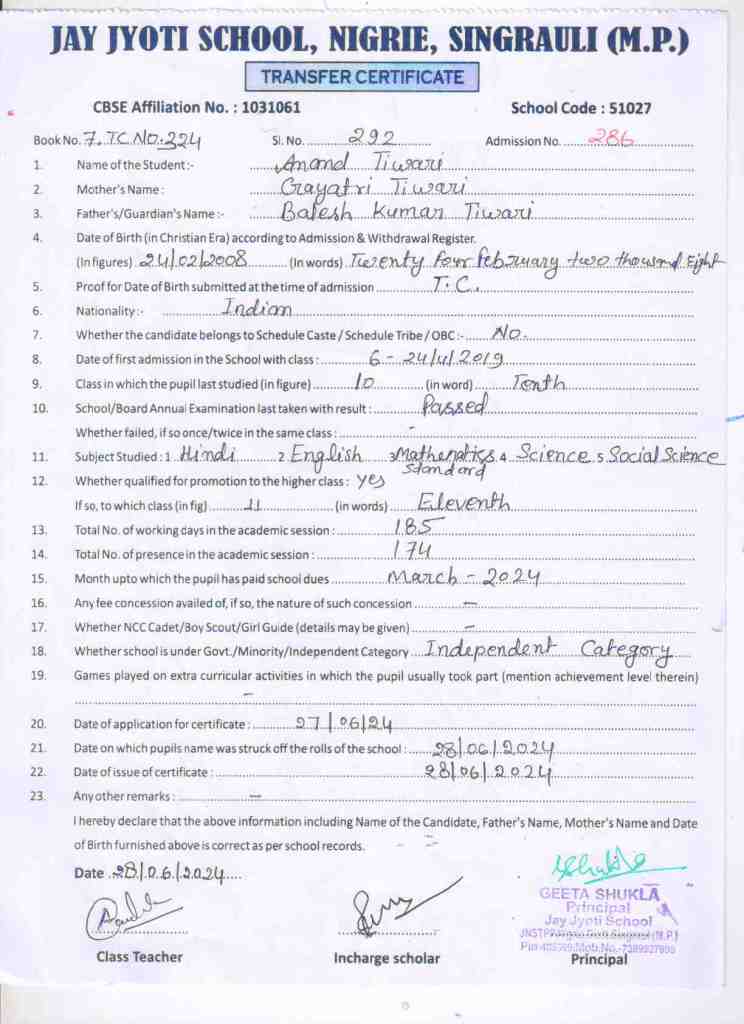 JAY JYOTI SCHOOL, NIGRIE, SINGRAULI (M.P.)
TRANSFER CERTIFICATE
CBSE Affiliation No. : 1031061 School Code : 51027
Book No. 7. TC NO. 324 Sl. No. 292 Admission No. 286
1. Name of the Student :- Anand Tiwari
2. Mother's Name : Gayatri Tiwari
3. Father's/Guardian's Name :- Balesh Kumar Tiwari
4. Date of Birth (in Christian Era) according to Admission & Withdrawal Register.
(In figures) 24/02/2008 (In words) Twenty four february two thousand Eight
5. Proof for Date of Birth submitted at the time of admission T.C.
6. Nationality :- Indian
7. Whether the candidate belongs to Schedule Caste / Schedule Tribe / OBC :- NO.
8. Date of first admission in the School with class : 6 - 24/4/2019
9. Class in which the pupil last studied (in figure) 10 (in word) Tenth
10. School/Board Annual Examination last taken with result : Passed
Whether failed, if so once/twice in the same class : -
11. Subject Studied : 1 Hindi 2 English 3 Mathematics 4 Science 5 Social Science
Standard
12. Whether qualified for promotion to the higher class : Yes
If so, to which class (in fig) 11 (in words) Eleventh
13. Total No. of working days in the academic session : 185
14. Total No. of presence in the academic session : 174
15. Month upto which the pupil has paid school dues March - 2024
16. Any fee concession availed of, if so, the nature of such concession —
17. Whether NCC Cadet/Boy Scout/Girl Guide (details may be given) —
18. Whether school is under Govt./Minority/Independent Category Independent Category
19. Games played on extra curricular activities in which the pupil usually took part (mention achievement level therein)
–
20. Date of application for certificate : 27/06/24
21. Date on which pupils name was struck off the rolls of the school : 28/06/2024
22. Date of issue of certificate : 28/06/2024
23. Any other remarks : —
I hereby declare that the above information including Name of the Candidate, Father's Name, Mother's Name and Date
of Birth furnished above is correct as per school records.
Date 28/06/2024
GEETA SHUKLA
Principal
Jay Jyoti School
Class Teacher Incharge scholar Principal